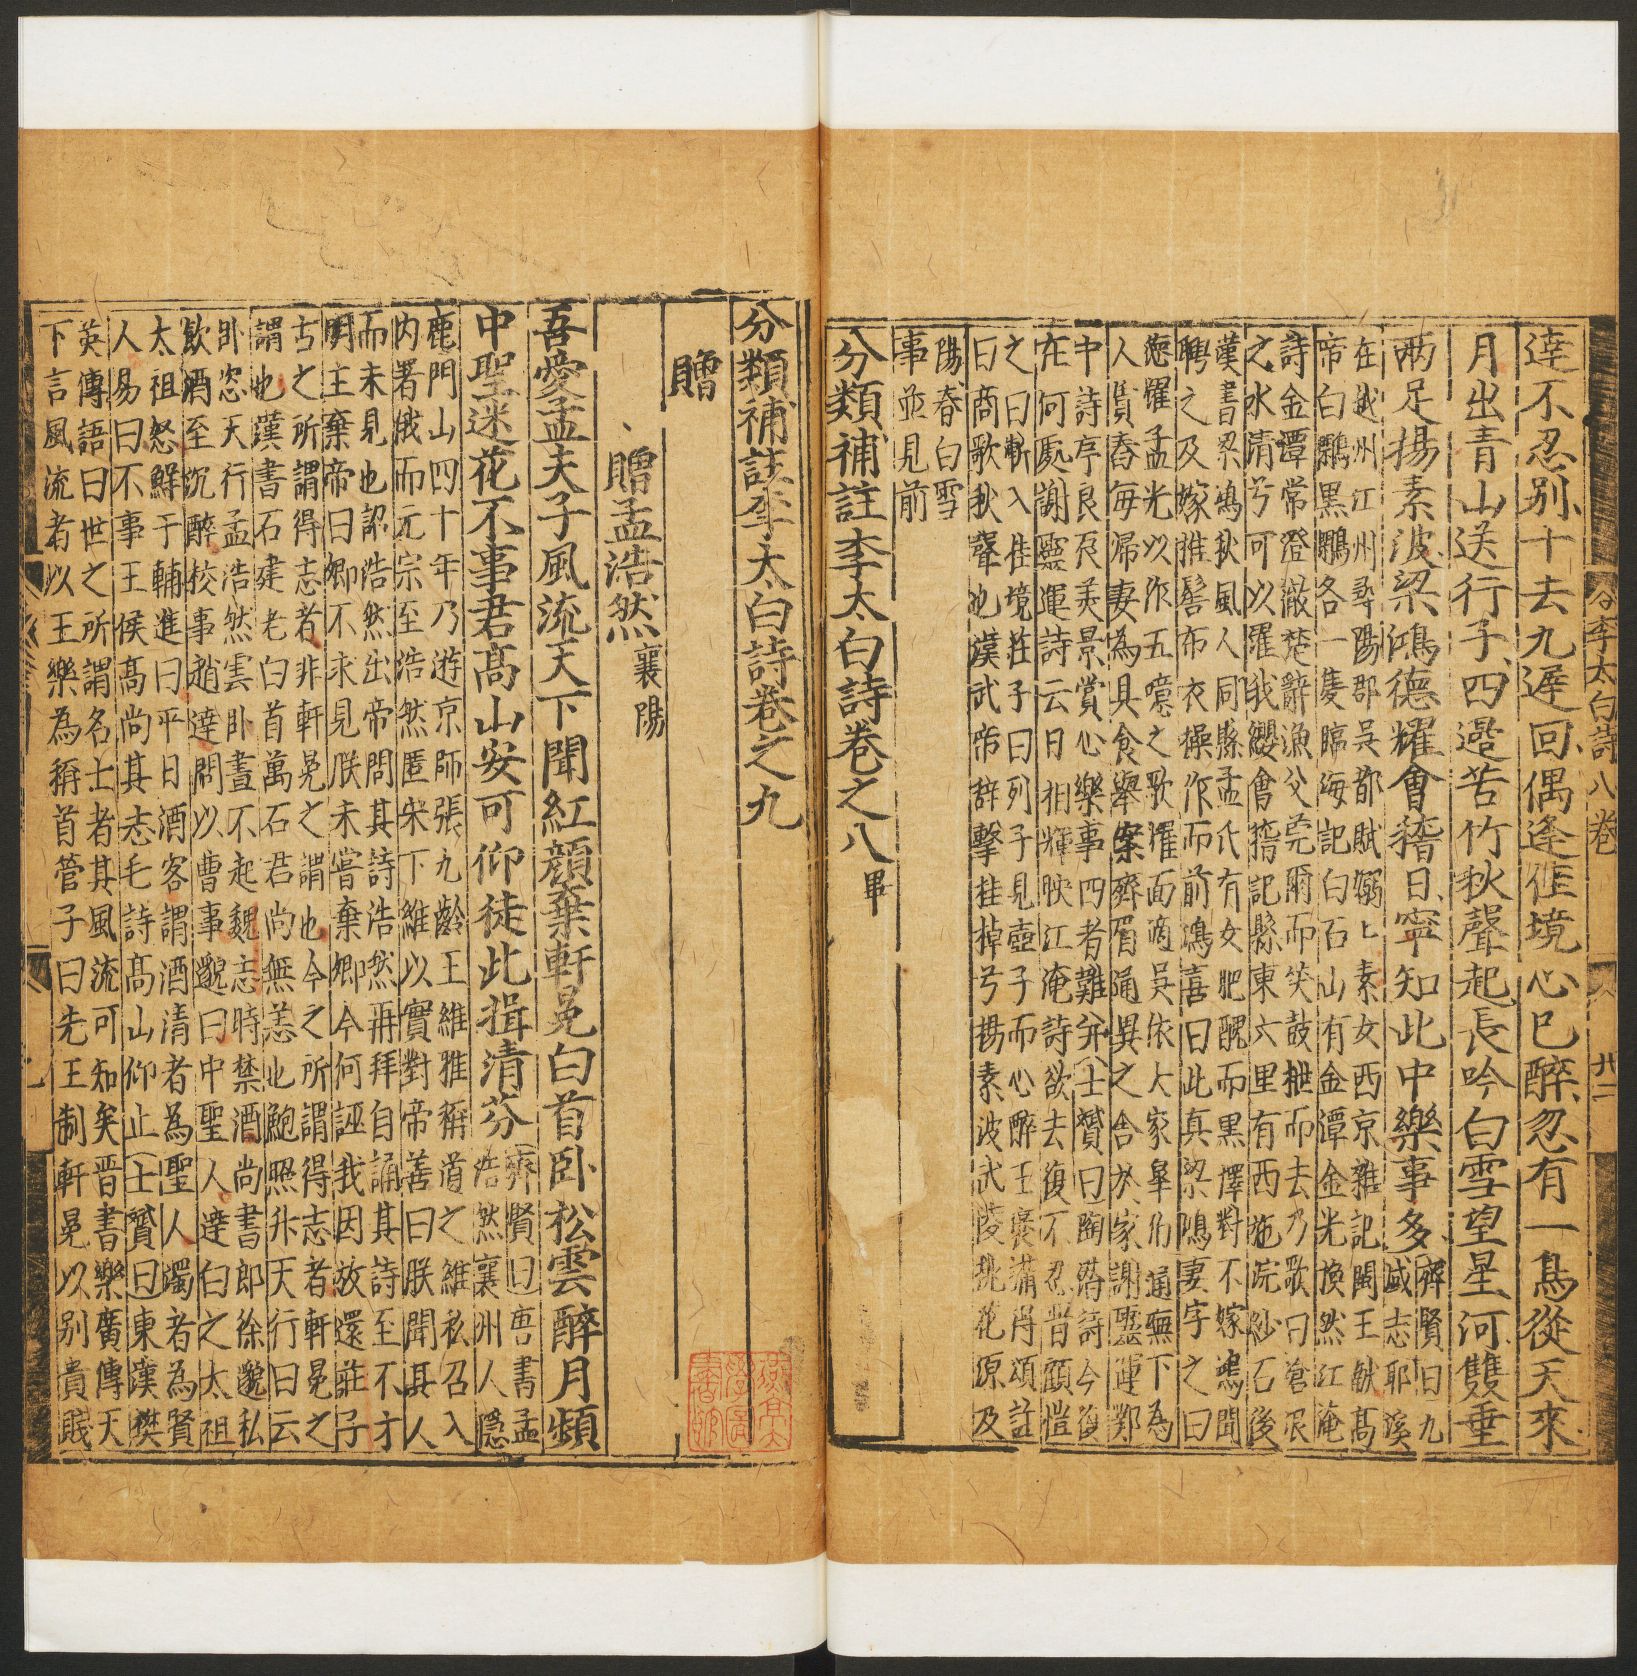 達不忍别十去九遲回偶逢隹境心已醉忽有一鳥從天來
月出青山送行子四邉苦竹秋聲起長吟白雪望星河雙垂
兩足揚素波梁鴻德耀會稽日寧知此中樂事多
齊賢曰九
域志耶溪
在越州江州尋陽郡吳都賦嫋〻素女西京雜記閩王獻髙
帝白鷴黑鷴各一隻臨海記白石山有金潭金光煥然江淹
詩金潭常澄澈楚辭漁父莞爾而笑鼓枻而去乃歌曰滄浪
之水清兮可以羅我纓會稽記縣東六里有西施浣紗石後
漢書梁鴻扶風人同縣孟氏有女肥醜而黑擇對不嫁鴻聞
聘之及嫁推髻布衣操作而前鴻喜曰此真梁鴻妻字之曰
德耀孟光以作五噫之歌濯面適吳依大家臯伯通廡下為
人賃舂每㷌妻為具食舉案齊眉涌異之舎扵家謝靈運鄴
中詩序良辰羙景賞心樂事四者難并士贇曰陶潜詩今復
在何處謝靈運詩云日相輝映江淹詩欲去復不忍昔顧愷
之曰斬入佳境莊子曰列子見壺子而心醉王襃瀟得頌註
曰商歌秋聲也漢武帝辭擊桂棹兮揚素波武陵桃花源及
陽春白雪
事並見前
分類補註李太白詩卷之八畢
李太白詩八卷
廿二
分類補註李太白詩卷之九
贈
贈孟浩然襄陽
吾愛孟夫子風流天下聞紅顔棄軒冕白首卧松雲醉月頻
中聖迷花不事君髙山安可仰徒此揖清芬
齊賢曰唐書孟
浩然襄州人隱
鹿門山四十年乃遊京師張九齡王維雅稱道之維私召入
内署俄而元宗至浩然匿床下維以實對帝善曰朕聞其人
而未見也詔浩然出帝問其詩浩然再拜自誦其詩至不才
明主棄帝曰卿不求見朕未嘗棄卿今何誣我因放還莊子
古之所謂得志者非軒冕之謂也今之所謂得志者軒冕之
謂也漢書石建老白首萬石君尚無恙也鮑照升天行曰云
卧恣天行孟浩然雲卧晝不起魏志時禁酒尚書郎徐邈私
飲酒至沉醉校事趙達問以曹事邈曰中聖人達白之太祖
太祖怒鮮于輔進曰平日酒客謂酒清者為聖人濁者為賢
人易曰不事王侯髙尚其志毛詩髙山仰止士贇曰東漢樊
英傳語曰世之所謂名士者其風流可知矣晉書樂廣傳天
下言風流者以王樂為稱首管子曰先王制軒冕以别貴賤